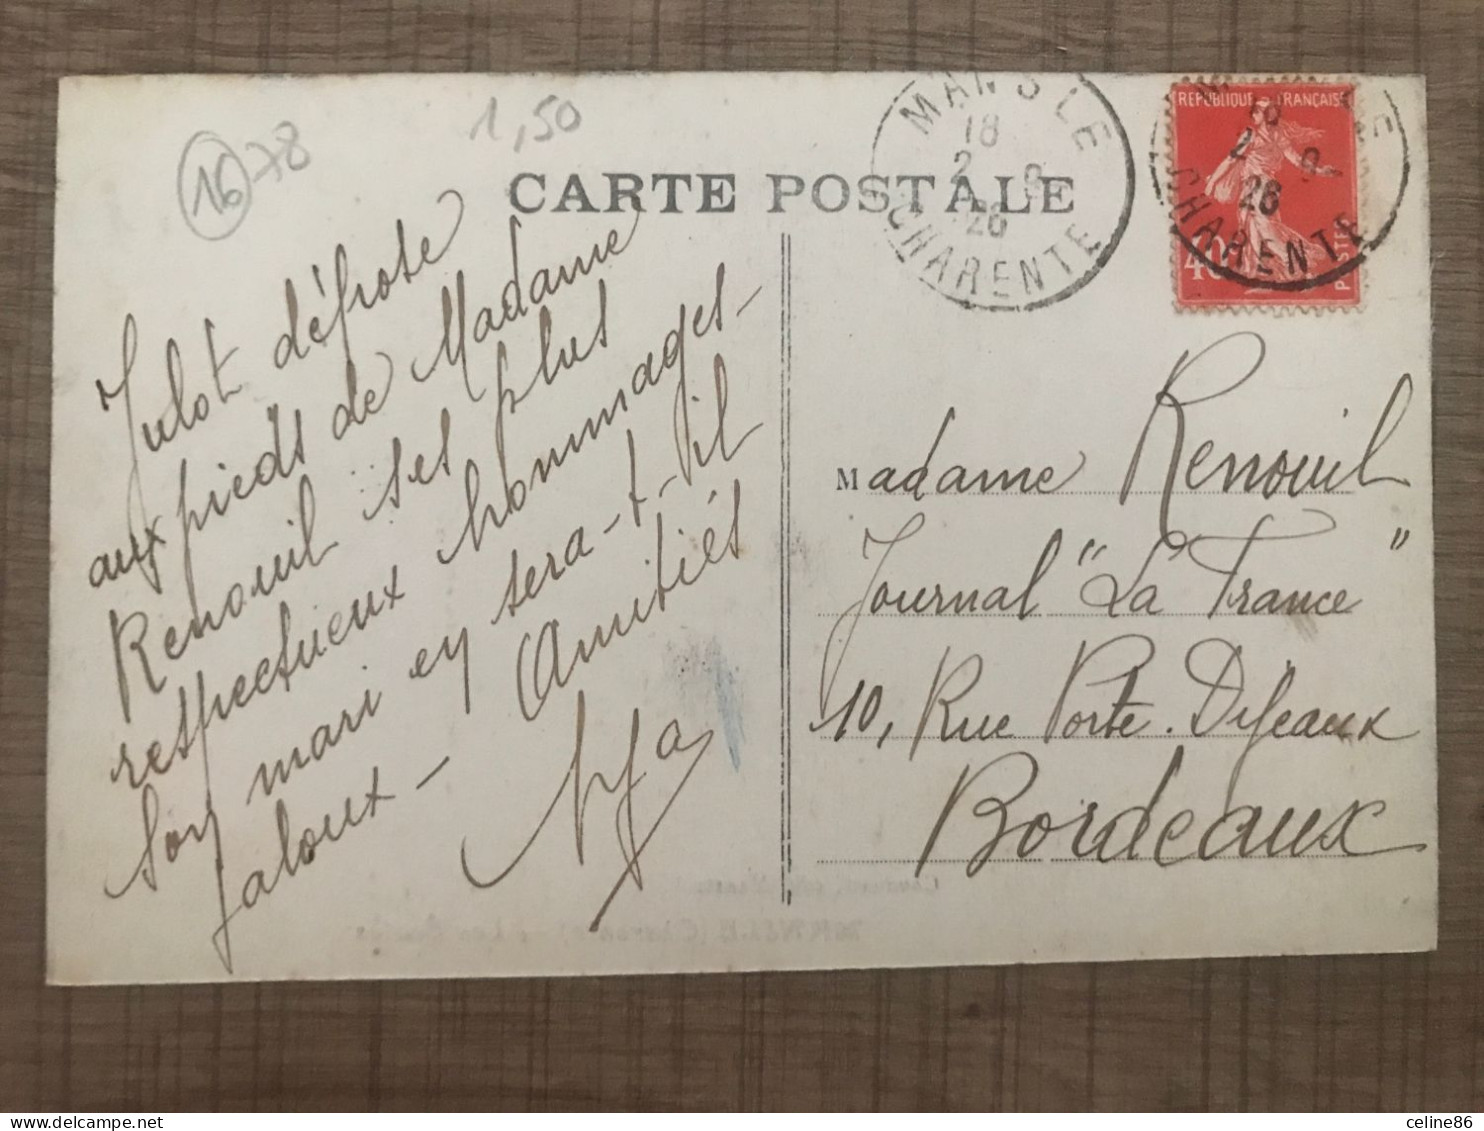 16 78
1,50
CARTE POSTALE
MANSLE
18
2 9
26
CHARENTE
REPUBLIQUE FRANÇAISE
18
2 9
26
CHARENTE
40
Julot dépose
aux pieds de Madame
Renouil ses plus
respectueux hommages-
Son mari en sera-t-il
jaloux - Amitiés
Madame Renouil
Journal "La France"
10, Rue Porte. Dijeaux
Bordeaux
MANSLE (Charente)
celine86